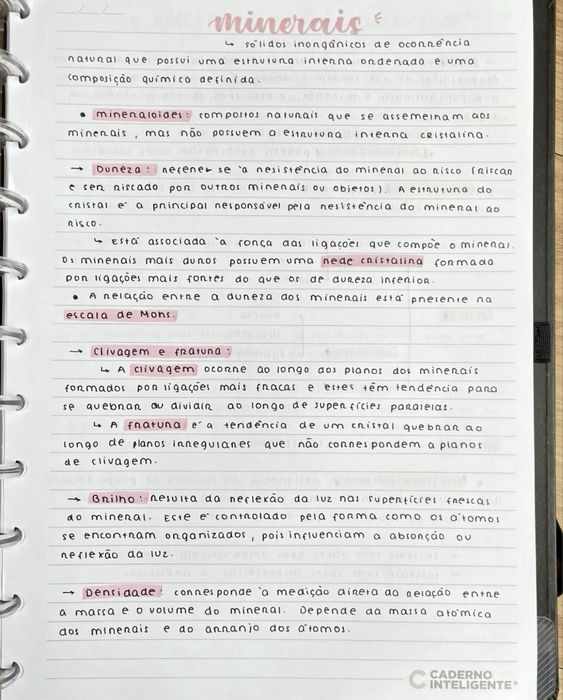 minerais
↳ sólidos inorgânicos de ocorrência
natural que possui uma estrutura interna ordenada e uma
composição químico definida.
• mineraloides: compostos naturais que se assemelham aos
minerais, mas não possuem a estrutura interna cristalina.
→ Dureza: referer se à resistência do mineral ao risco (riscar
e ser riscado por outros minerais ou objetos). A estrutura do
cristal é a principal responsável pela resistência do mineral ao
risco.
↳ está associada à força das ligações que compõe o mineral.
Os minerais mais duros possuem uma rede cristalina formada
por ligações mais fortes do que os de dureza inferior.
• A relação entre a dureza dos minerais está presente na
escala de Mohs.
→ Clivagem e fratura:
↳ A clivagem ocorre ao longo dos planos dos minerais
formados por ligações mais fracas e estes têm tendência para
se quebrar ou dividir ao longo de superfícies paralelas.
↳ A fratura é a tendência de um cristal quebrar ao
longo de planos irregulares que não correspondem a planos
de clivagem.
→ Brilho: resulta da reflexão da luz nas superfícies frescas
do mineral. Este é controlado pela forma como os átomos
se encontram organizados, pois influenciam a absorção ou
reflexão da luz.
→ Densidade: corresponde à medição direta do relação entre
a massa e o volume do mineral. Depende da massa atómica
dos minerais e do arranjo dos átomos.
CADERNO
INTELIGENTE